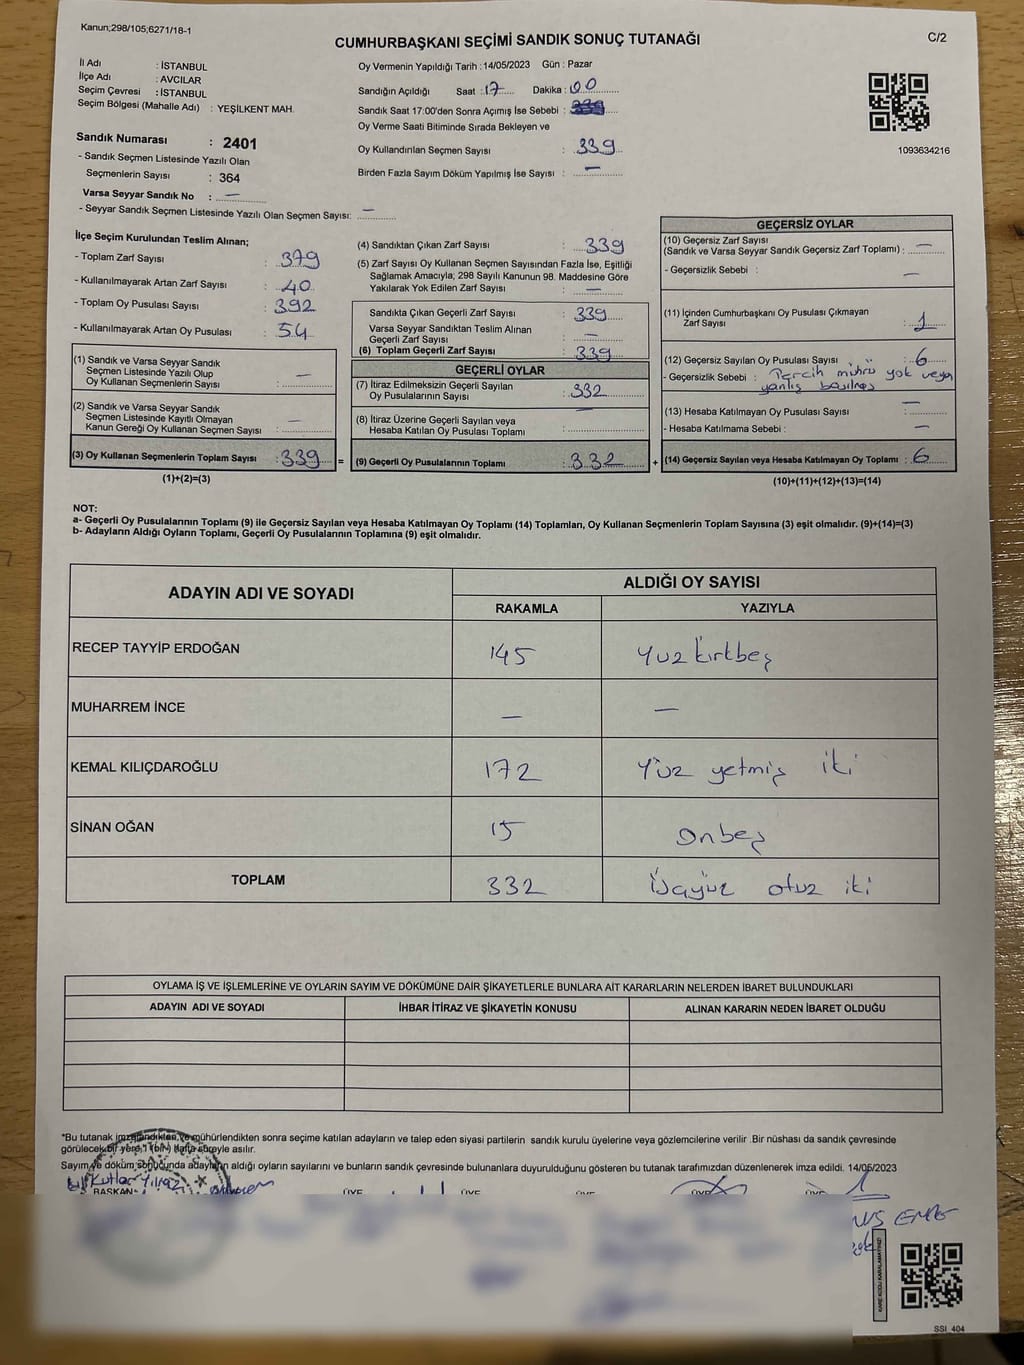 Kanun;298/105;6271/18-1
CUMHURBAŞKANI SEÇİMİ SANDIK SONUÇ TUTANAĞI
C/2
İl Adı : İSTANBUL
İlçe Adı : AVCILAR
Seçim Çevresi : İSTANBUL
Seçim Bölgesi (Mahalle Adı) : YEŞİLKENT MAH.
Oy Vermenin Yapıldığı Tarih : 14/05/2023 Gün : Pazar
Sandığın Açıldığı Saat : 17 Dakika : 00
Sandık Saat 17:00'den Sonra Açımış İse Sebebi :
Oy Verme Saati Bitiminde Sırada Bekleyen ve
Oy Kullandırılan Seçmen Sayısı : 339
Birden Fazla Sayım Döküm Yapılmış İse Sayısı : —
1093634216
Sandık Numarası : 2401
- Sandık Seçmen Listesinde Yazılı Olan
Seçmenlerin Sayısı : 364
Varsa Seyyar Sandık No : —
- Seyyar Sandık Seçmen Listesinde Yazılı Olan Seçmen Sayısı: —
İlçe Seçim Kurulundan Teslim Alınan;
- Toplam Zarf Sayısı : 379
- Kullanılmayarak Artan Zarf Sayısı : 40
- Toplam Oy Pusulası Sayısı : 392
- Kullanılmayarak Artan Oy Pusulası : 54
(1) Sandık ve Varsa Seyyar Sandık
Seçmen Listesinde Yazılı Olup
Oy Kullanan Seçmenlerin Sayısı : —
(2) Sandık ve Varsa Seyyar Sandık
Seçmen Listesinde Kayıtlı Olmayan
Kanun Gereği Oy Kullanan Seçmen Sayısı : —
(3) Oy Kullanan Seçmenlerin Toplam Sayısı : 339 =
(1)+(2)=(3)
(4) Sandıktan Çıkan Zarf Sayısı : 339
(5) Zarf Sayısı Oy Kullanan Seçmen Sayısından Fazla İse, Eşitliği
Sağlamak Amacıyla; 298 Sayılı Kanunun 98. Maddesine Göre
Yakılarak Yok Edilen Zarf Sayısı : —
Sandıkta Çıkan Geçerli Zarf Sayısı : 339
Varsa Seyyar Sandıktan Teslim Alınan
Geçerli Zarf Sayısı : —
(6) Toplam Geçerli Zarf Sayısı : 339
GEÇERLİ OYLAR
(7) İtiraz Edilmeksizin Geçerli Sayılan
Oy Pusulalarının Sayısı : 332
(8) İtiraz Üzerine Geçerli Sayılan veya
Hesaba Katılan Oy Pusulası Toplamı : —
(9) Geçerli Oy Pusulalarının Toplamı : 332 +
GEÇERSİZ OYLAR
(10) Geçersiz Zarf Sayısı
(Sandık ve Varsa Seyyar Sandık Geçersiz Zarf Toplamı) : —
- Geçersizlik Sebebi : —
(11) İçinden Cumhurbaşkanı Oy Pusulası Çıkmayan
Zarf Sayısı : 1
(12) Geçersiz Sayılan Oy Pusulası Sayısı : 6
- Geçersizlik Sebebi : Tercih mührü yok veya
yanlış basılmış
(13) Hesaba Katılmayan Oy Pusulası Sayısı : —
- Hesaba Katılmama Sebebi : —
(14) Geçersiz Sayılan veya Hesaba Katılmayan Oy Toplamı : 6
(10)+(11)+(12)+(13)=(14)
NOT:
a- Geçerli Oy Pusulalarının Toplamı (9) ile Geçersiz Sayılan veya Hesaba Katılmayan Oy Toplamı (14) Toplamları, Oy Kullanan Seçmenlerin Toplam Sayısına (3) eşit olmalıdır. (9)+(14)=(3)
b- Adayların Aldığı Oyların Toplamı, Geçerli Oy Pusulalarının Toplamına (9) eşit olmalıdır.
ADAYIN ADI VE SOYADI ALDIĞI OY SAYISI
RAKAMLA YAZIYLA
RECEP TAYYİP ERDOĞAN 145 Yüz kırkbeş
MUHARREM İNCE — —
KEMAL KILIÇDAROĞLU 172 Yüz yetmiş iki
SİNAN OĞAN 15 Onbeş
TOPLAM 332 Üçyüz otuz iki
OYLAMA İŞ VE İŞLEMLERİNE VE OYLARIN SAYIM VE DÖKÜMÜNE DAİR ŞİKAYETLERLE BUNLARA AİT KARARLARIN NELERDEN İBARET BULUNDUKLARI
ADAYIN ADI VE SOYADI İHBAR İTİRAZ VE ŞİKAYETİN KONUSU ALINAN KARARIN NEDEN İBARET OLDUĞU
*Bu tutanak imzalandıktan ve mühürlendikten sonra seçime katılan adayların ve talep eden siyasi partilerin sandık kurulu üyelerine veya gözlemcilerine verilir .Bir nüshası da sandık çevresinde
görülecek bir yere 1 (bir) hafta süreyle asılır.
Sayım ve döküm sonucunda adayların aldığı oyların sayılarını ve bunların sandık çevresinde bulunanlara duyurulduğunu gösteren bu tutanak tarafımızdan düzenlenerek imza edildi. 14/05/2023
BAŞKAN ÜYE ÜYE ÜYE ÜYE ÜYE
EMRE
KARE KODU KARALAMAYINIZ!
SSI_404